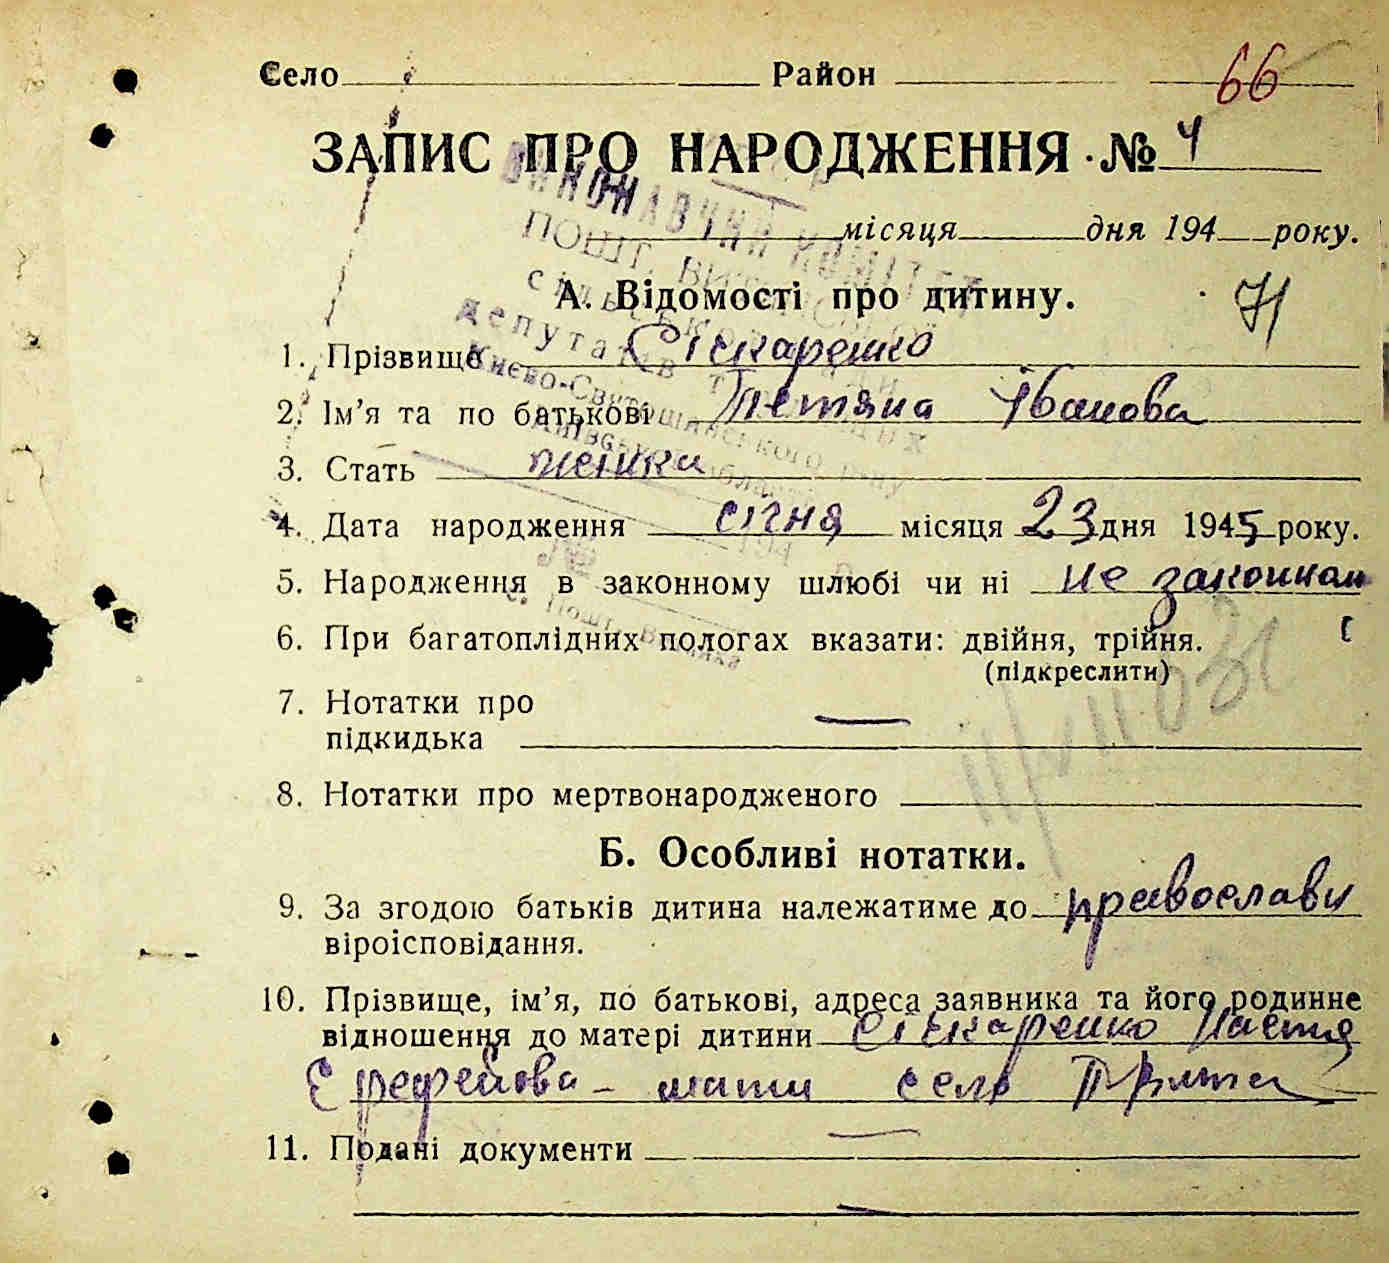 Село Район 66
ЗАПИС ПРО НАРОДЖЕННЯ № 4
місяця дня 194 року.
ВИКОНАВЧИЙ КОМІТЕТ
ПОШТ. ВИТ
СІЛЬСЬКОЇ
депутатів
Києво-Святошинського р-ну
Київської області
А. Відомості про дитину. 71
1. Прізвище
2. Ім'я та по батькові Тетяна Іванова
3. Стать жінка
4. Дата народження січня місяця 23 дня 1945 року.
5. Народження в законному шлюбі чи ні не законном
6. При багатоплідних пологах вказати: двійня, трійня.
(підкреслити)
7. Нотатки про
підкидька —
8. Нотатки про мертвонародженого
Б. Особливі нотатки.
9. За згодою батьків дитина належатиме до православн
віроісповідання.
10. Прізвище, ім'я, по батькові, адреса заявника та його родинне
відношення до матері дитини Настя
Єрефейова - мати село
11. Подані документи —